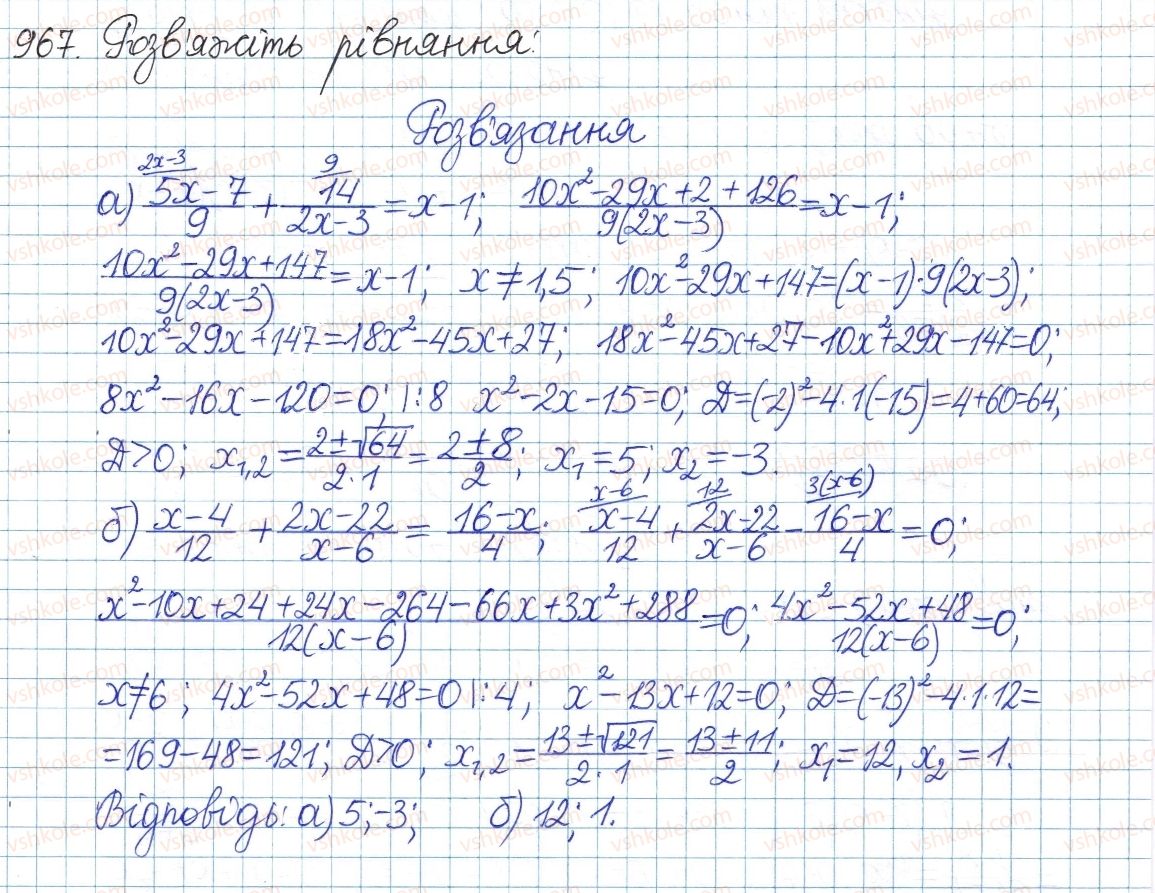 967. Розв'яжіть рівняння:
Розв'язання
а) (5x-7)/9 ^(2x-3) + 14/(2x-3) ^9 = x-1; (10x²-29x+2+126)/(9(2x-3)) = x-1;
(10x²-29x+147)/(9(2x-3)) = x-1; x≠1,5; 10x²-29x+147=(x-1)·9(2x-3);
10x²-29x+147=18x²-45x+27; 18x²-45x+27-10x²+29x-147=0;
8x²-16x-120=0; |:8 x²-2x-15=0; Д=(-2)²-4·1(-15)=4+60=64;
Д>0; x₁,₂ = (2±√64)/(2·1) = (2±8)/2; x₁=5; x₂=-3.
б) (x-4)/12 + (2x-22)/(x-6) = (16-x)/4; (x-4)/12 ^(x-6) + (2x-22)/(x-6) ^12 - (16-x)/4 ^(3(x-6)) = 0;
(x²-10x+24+24x-264-66x+3x²+288)/(12(x-6)) = 0; (4x²-52x+48)/(12(x-6)) = 0;
x≠6; 4x²-52x+48=0 |:4; x²-13x+12=0; Д=(-13)²-4·1·12=
=169-48=121; Д>0; x₁,₂ = (13±√121)/(2·1) = (13±11)/2; x₁=12, x₂=1.
Відповідь: а) 5;-3; б) 12; 1.